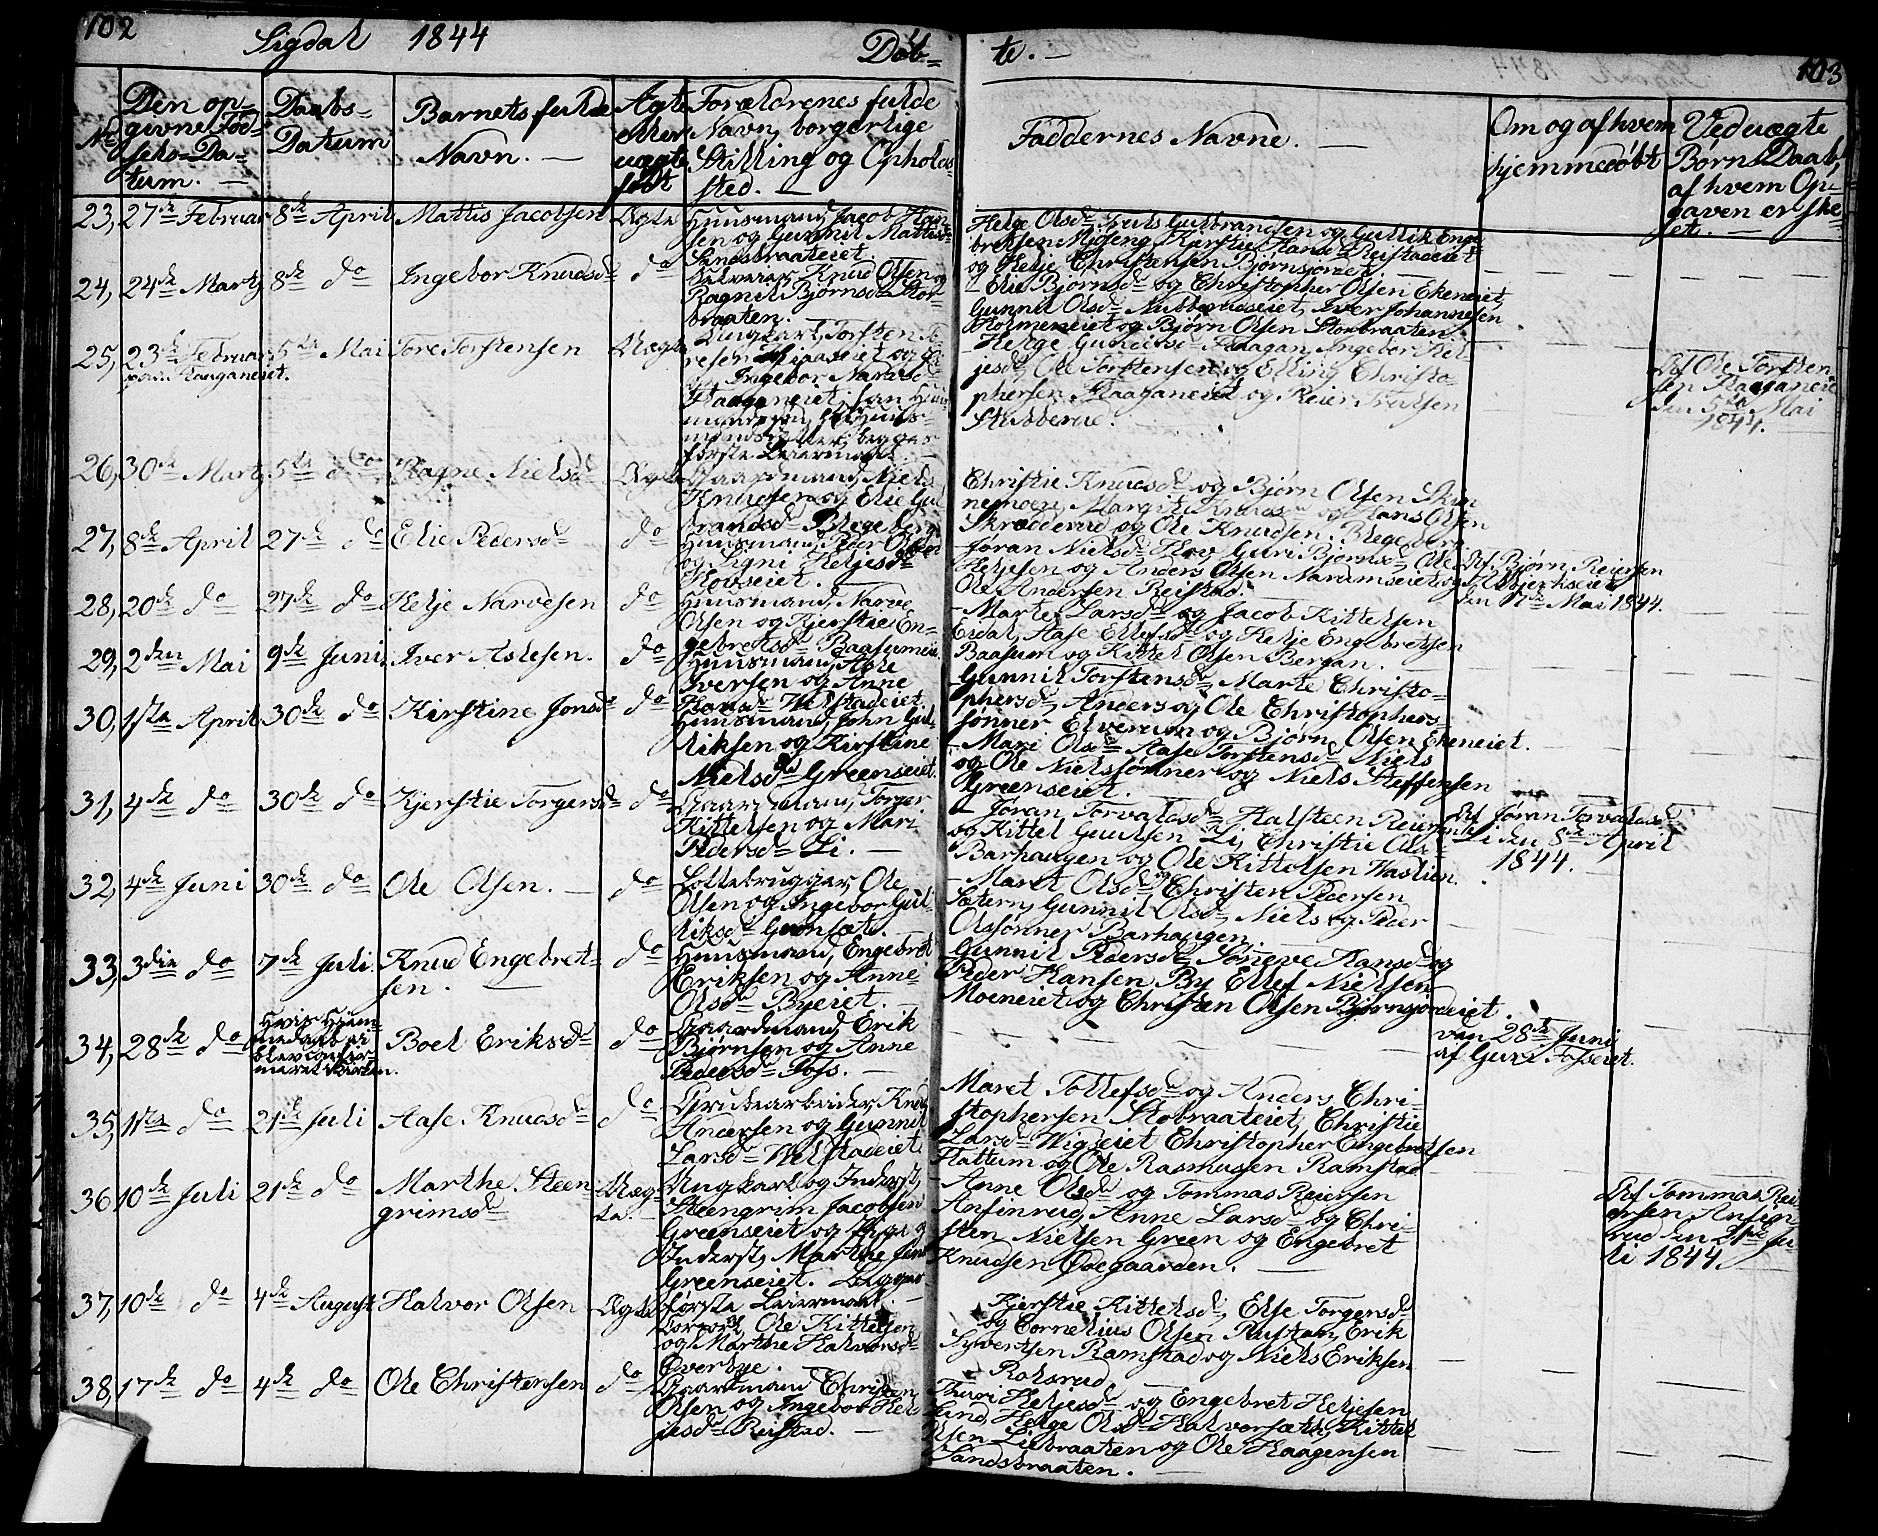 102
Sigdal 1844
Døb=
te. —
103
No
Den op=
givne Fød=
sels=Da=
tum. —
Daabs=
Datum
Barnets fulde
Navn. —
Ægte
eller
uægte
født
Forældrenes fulde
Navn, borgerlige
Stilling og Opholds=
sted. —
Faddernes Navne. —
Om og af hvem
hjemmedøbt
Ved uægte
Børns Daab,
af hvem Op=
gaven er ske=
et. —
23, 27de Februar 8de April Mattis Jacobsen Ægte
Huusmand, Jacob Han=
sen og Gunnil Mattisd
Sandsbraateiet
Helge Olsd Truls Gulbrandsen og Gullik Enge
bretsen Modeng, Kjerstie Hansd Reistadeiet
og Helje Christensen Bjørnsjordeiet
24, 24de Martz 8de do Ingebor Knudsd do
Selveier Knud Olsen og
Ragnil Bjørnsd Stor=
braaten. —
Elie Bjørnsd og Christopher Olsen Ekeneiet,
Gunnil Olsd Nubberudseiet, Iver Johannesen
Holmeneiet og Bjørn Olsen Storbraaten.
25, 23de Februar 5te Mai Tore Torstensen Uægte
paa Haaganeiet.
Ungkarl, Torsten To=
resen
Ingebor Narvesd
Haaganeiet, han Huus=
mandssøn,
mandsdatter, begges
første Leiermaal.
Helge Gundersd Haagan, Ingebor Hel
jesd, Ole Torstensen og Elling Christo=
phersen Haaganeiet og Reier Trulsen
Stubberud.
Af Ole Torsten=
sen Haaganeiet
den 5te Mai
1844.
26, 30de Martz 5te do Ragne Nielsd Ægte
Gaardmand, Niels
Knudsen og Elie Gul
brandsd Blegeberg
Christie Knudsd og Bjørn Olsen Skin
nemoen, Margit Knudsd og Hans Olsen
Skrædderud og Ole Knudsen Blegeberg
27, 8de April 27de do Elie Pedersd do
Huusmand, Peder Olsen
og Signi Heljesd
Hovseiet.
Jøran Nielsd Hov, Guri Bjørnsd, Ole
Heljesen og Anders Olsen Narumseiet og
Ole Andersen Reistad.
Af Bjørn Reiersen
den 17de Mai 1844.
28, 20de do 27de do Helje Narvesen do
Huusmand, Narve
Olsen og Kjerstie En=
gebretsd Baasumeiet
Marte Larsd og Jacob Kittelsen
Eidal, Aase Ellefsd og Helje Engebretsen
Baasum og Kittel Olsen Bergan.
29, 2den Mai 9de Juni Iver Aslesen. do
Huusmand, Asle
Iversen og Anne
Hansd Velstadeiet
Gunnil Torstensd, Marte Christo=
phersd, Anders og Ole Christophers=
sønner Elverum og Bjørn Olsen Ekeneiet.
30, 1ste April 30de do Kirstine Jonsd do
Huusmand, John Gul
liksen og Kirstine
Nielsd Greenseiet.
Mari Olsd Aase Torstensd Niels
og Ole Nielssønner og Niels Steffensen
Greenseiet.
31, 4de do 30de do Kjerstie Torgersd do
Gaardmand, Torger
Kittelsen og Mari
Pedersd Li. —
Jøran Torvalsd Halsteen Reiersen
og Kittel Gulsen Li, Christie Olsd
Barhaugen og Ole Kittelsen Haslien.
Af Jøran Torvalsd
Li den 8de April
1844.
32, 4de Juni 30de do Ole Olsen. — do
Pottebrugger, Ole
Olsen og Ingebor Gul=
liksd Grønsæt. —
Maret Olsd og Christen Pedersen
Sætern, Gunnil Olsd, Niels og Peder
Olssønner Barhaugen
33, 3die do 7de Juli Knud Engebret= do
sen.
Huusmand, Engebret
Eriksen og Anne
Olsd Byeiet. —
Gunnil Pedersd Tørieve Hansd og
Peder Hansen By Ellef Nielsen
Moeneiet og Christen Olsen Bjørnsjordeiet.
34, 28de do Boel Eriksd do
Hvis Hjem=
medaab ei
blev confir=
meret i Kirken.
Gaardmand, Erik
Bjørnsen og Anne
Pedersd Foss. —
den 28de Juni
af Guri Fosseiet.
35, 1ste do 21de Juli Aase Knudsd do
Brugsarbeider, Knud
Andersen og Gunnil
Larsd Velstadeiet
Maret Tollefsd og Anders Chri=
stophersen Stobraateiet, Christie
Larsd Vigeiet Christopher Engebretsen
Flattum og Ole Rasmusen Ramstad
36 10de Juli 21de do Marthe Steen Uæg=
grimsd te. —
Ungkarl og Inderst,
Steengrim Jacobsen
Greenseiet og Pige og
Inderst, Marthe
Greenseiet. Begges
første Leiermaal.
Anne Olsd og Tommas Reiersen
Anfinrud, Anne Larsd og Chri=
sten Nielsen Green og Engebret
Knudsen Ødegaarden.
Af Tommas Rei
ersen Anfin=
rud den 21de Ju=
li 1844.
37, 10de do 4de August Halvor Olsen Ægte
Corporal, Ole Kittelsen
og Marthe Halvorsd
Overbye. —
Kjerstie Kittelsd, Else Torgersd
og Cornelius Olsen Rustan, Erik
Syvertsen Ramstad og Niels Eriksen
Rolsrud.
38, 17de do 4de do Ole Christensen do
Gaardmand Christen
Olsen og Ingebor Hel=
jesd Reistad. —
Thuri Heljesd og Engebret Heljesen
Lund, Helge Olsd Halvorsæth, Kittel
Olsen Liebraaten og Ole Haagensen
Sandsbraaten.